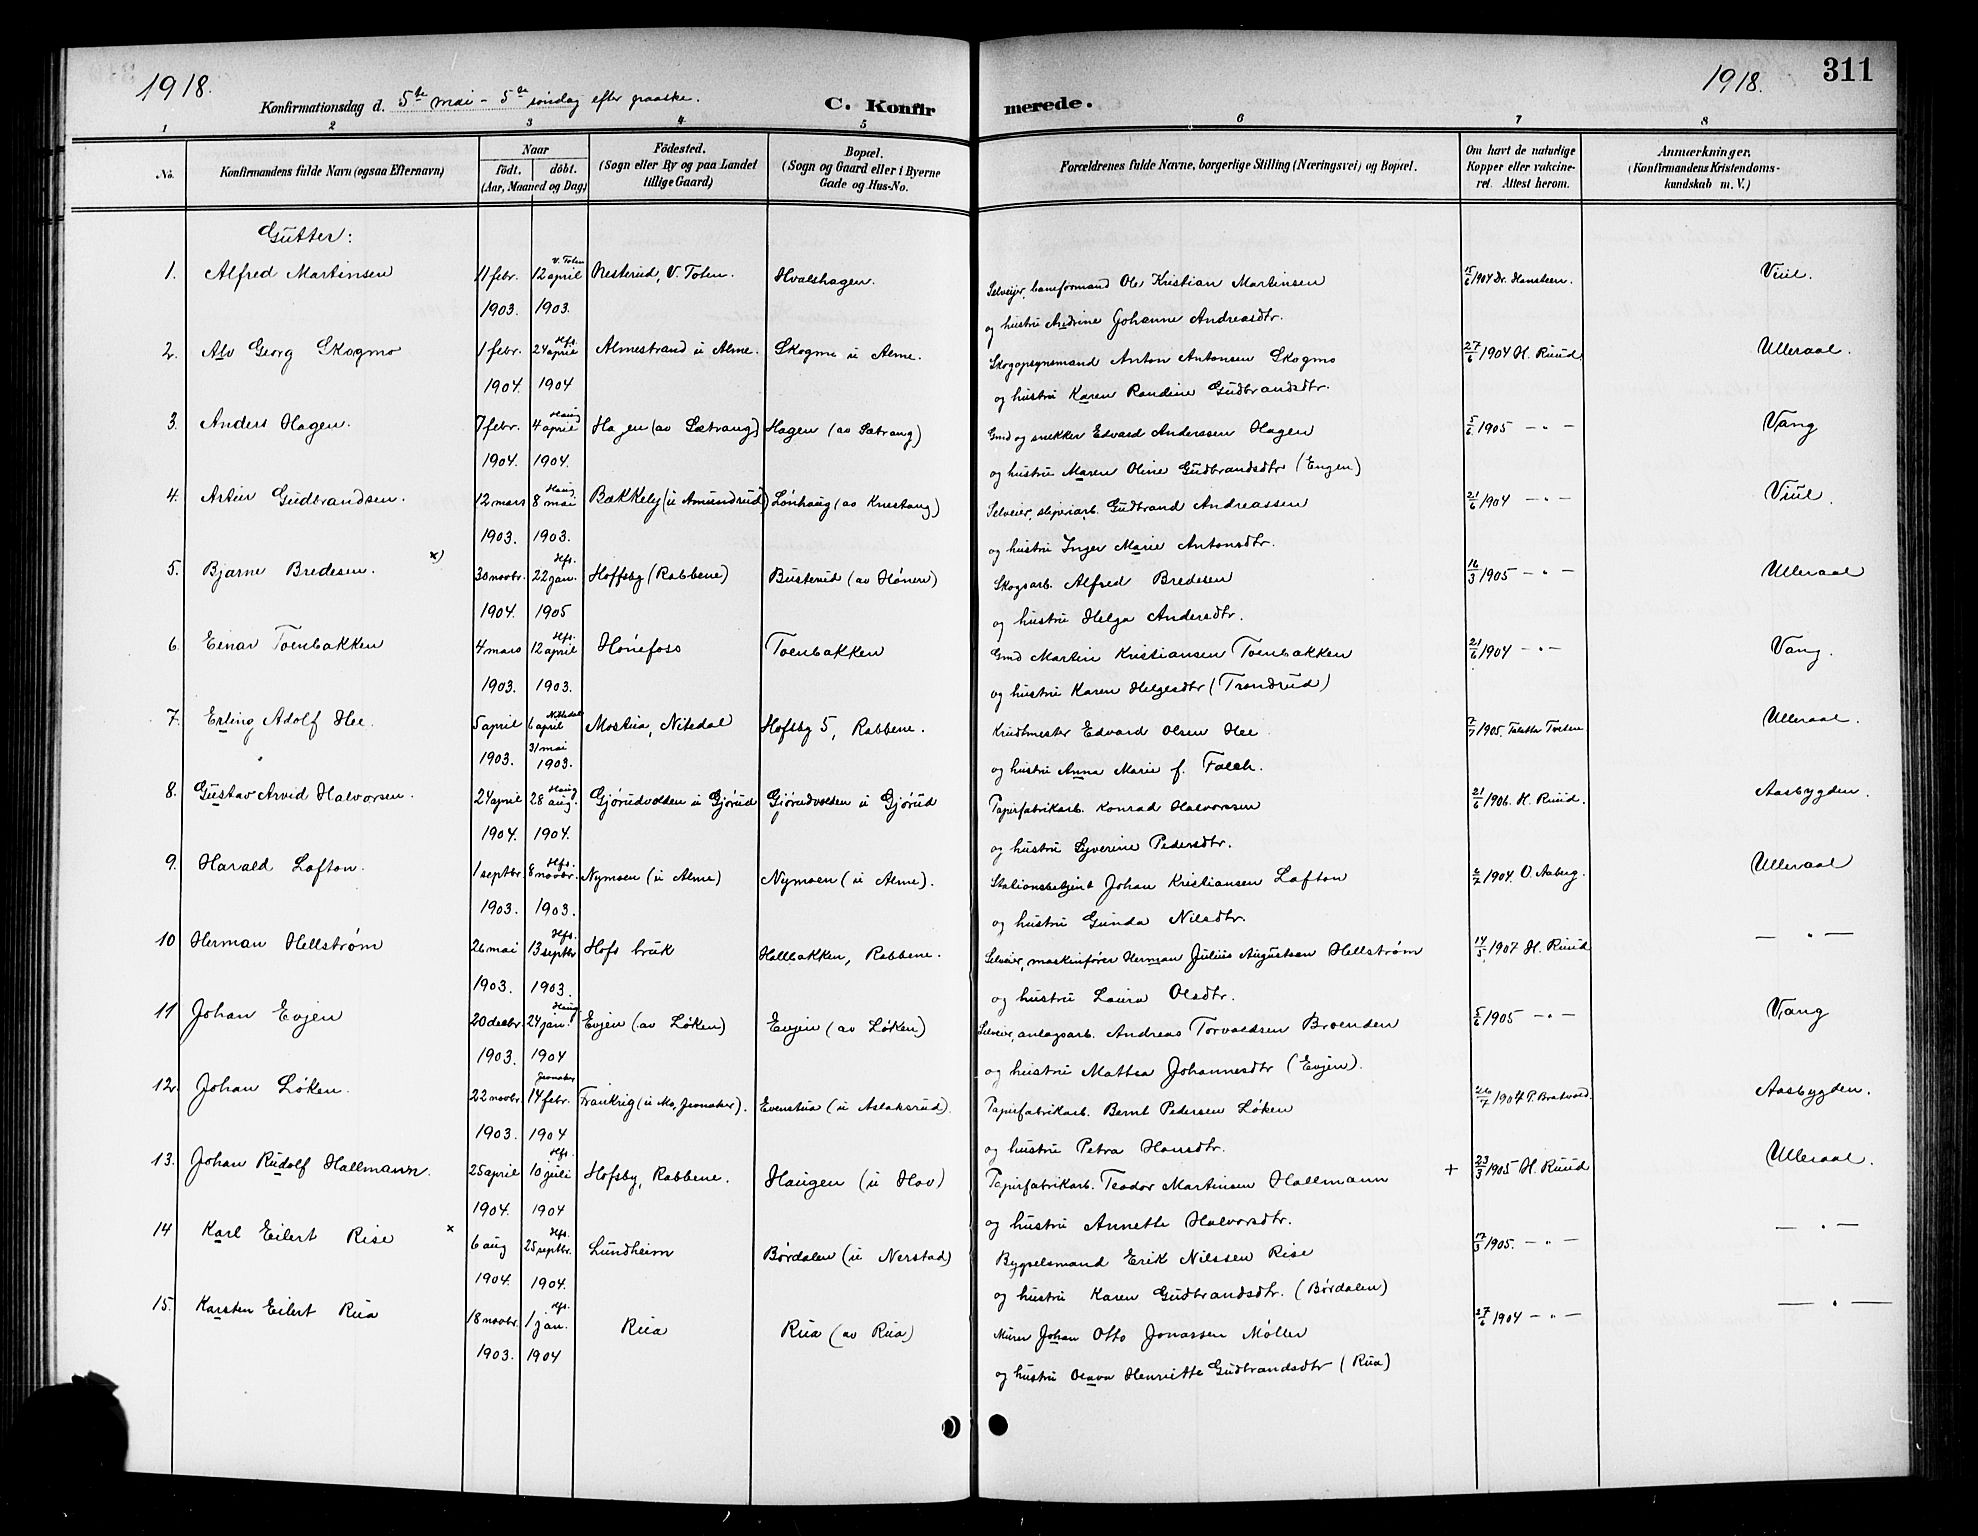 1918. 1918. 311
Konfirmationsdag d. 5te mai - 5te søndag efter paaske. C. Konfirmerede.
1 2 3 4 5 6 7 8
No. Konfirmandens fulde Navn (ogsaa Efternavn) Naar født. døbt. (Aar, Maaned og Dag) Fødested. (Sogn eller By og paa Landet tillige Gaard) Bopæl. (Sogn og Gaard eller i Byerne Gade og Hus-No. Forældrenes fulde Navne, borgerlige Stilling (Næringsvei) og Bopæl. Om havt de naturlige Kopper eller vaccineret. Attest herom. Anmærkninger. (Konfirmandens Kristendomskundskab m. V.)
Gutter:
1. Alfred Martinsen 11 febr. 1903. V. Toten 12 april 1903. Nesterud, V. Toten. Hvalshagen. Selveier, baneformand Ole Kristian Martinsen 15/6 1904 Dr. Hansteen. Viul.
og hustru Andrine Johanne Andreasdtr.
2. Alv Georg Skogmo 1 febr. 1904. Hfs. 24 april 1904 Almestrand u Alme. Skogmo u Alme. Skogopsynsmand Anton Antonsen Skogmo 27/6 1904 H. Ruud Ulleraal.
og hustru Karen Randine Gudbrandsdtr.
3. Anders Hagen. 7 febr. 1904. Haug 4 april 1904. Hagen (av Sætrang) Hagen (av Sætrang) Gmd og snekker Edvard Andersen Hagen 5/6 1905 — " — Vang
og hustru Maren Oline Gudbrandsdtr (Engen)
4. Artur Gudbrandsen. 12 mars 1903. Haug 8 mai 1903. Bækkely (u Amundrud) Lønhaug (av Knestang) Selveier, sliperiarb. Gudbrand Andreassen 21/6 1904 — " — Viul.
og hustru Inger Marie Antonsdtr.
5. Bjarne Bredesen. x) 30 novbr. 1904. Hfs. 22 jan. 1905 Hoffsby (Rabbene) Busterud (av Hønen) Skogsarb. Alfred Bredesen 16/3 1905 — " — Ulleraal
og hustru Helga Andersdtr.
6. Einar Toenbakken 4 mars 1903. Hfs. 12 april 1903. Hønefoss Toenbakken Gmd Martin Kristiansen Toenbakken 21/6 1904 — " — Vang.
og hustru Karen Helgesdtr (Trondrud)
7. Erling Adolf Hee. 5 april 1903. Nittedal 6 april 31 mai 1903. Mostua, Nitedal Hofsby 5, Rabbene. Krudtmester Edvard Olsen Hee 7/7 1905. Ulleraal.
og hustru Anna Marie f. Falch.
8. Gustav Arvid Halvorsen. 24 april 1904. Haug 28 aug. 1904. Gjørudvolden u Gjørud Gjørudvolden u Gjørud Papirfabrikarb. Konrad Halvorssen 21/6 1906. H. Ruud. Aasbygden.
og hustru Syverine Pedersdtr.
9. Harald Lofton. 1 septbr. 1903. Hfs. 8 novbr. 1903. Nymoen (u Alme) Nymoen (u Alme). Stationsbetjent Johan Kristiansen Lafton 2/7 1904. O. Aaberg. Ulleraal
og hustru Gunda Nilsdtr.
10 Herman Hellstrøm 26 mai 1903. Hfs. 13 septbr 1903. Hofs bruk Hallbakken, Rabbene. Selveier, maskinfører Herman Julius Augustsen Hellstrøm 14/5 1907 H. Ruud — " —
og hustru Laura Olsdtr.
11 Johan Evjen 20 decbr. 1903. Haug 24 jan. 1904 Evjen (av Løken) Evjen (av Løken) Selveier, anlægsarb. Andreas Torvaldsen Brænden 5/6 1905 — " — Vang
og hustru Mathea Johannesdtr (Evjen).
12. Johan Løken. 22 novbr. 1903. Jevnaker 14 febr. 1904 Frankrig (u Mo, Jevnaker). Evenstua (u Aslaksrud). Papirfabrikarb. Bernt Pedersen Løken 26/7 1904 P. Bratvold. Aasbygden.
og hustru Petra Hansdtr.
13. Johan Rudolf Hallmann. 25 april 1904. Hfs. 10 juli 1904 Hofsby, Rabbene. Haugen (u Hov) Papirfabrikarb. Teodor Martinsen Hallmann + 23/3 1905 H. Ruud Ulleraal.
og hustru Annette Halvorsdtr.
14 Karl Eilert Rise x 6 aug 1904. Hfs. 25 septbr. 1904. Lundheim Børdalen (u Nerstad) Bygselsmand Erik Nilssen Rise 17/3 1905. — " — — " —
og hustru Karen Gudbrandsdtr. (Børdalen)
15. Karsten Eilert Rua 18 novbr. 1903. Hfs. 1 jan. 1904 Rua Rua (av Rua) Murer Johan Otto Jonassen Møller 27/6 1904 — " — — " —
og hustru Olava Henriette Gudbrandsdtr (Rua)